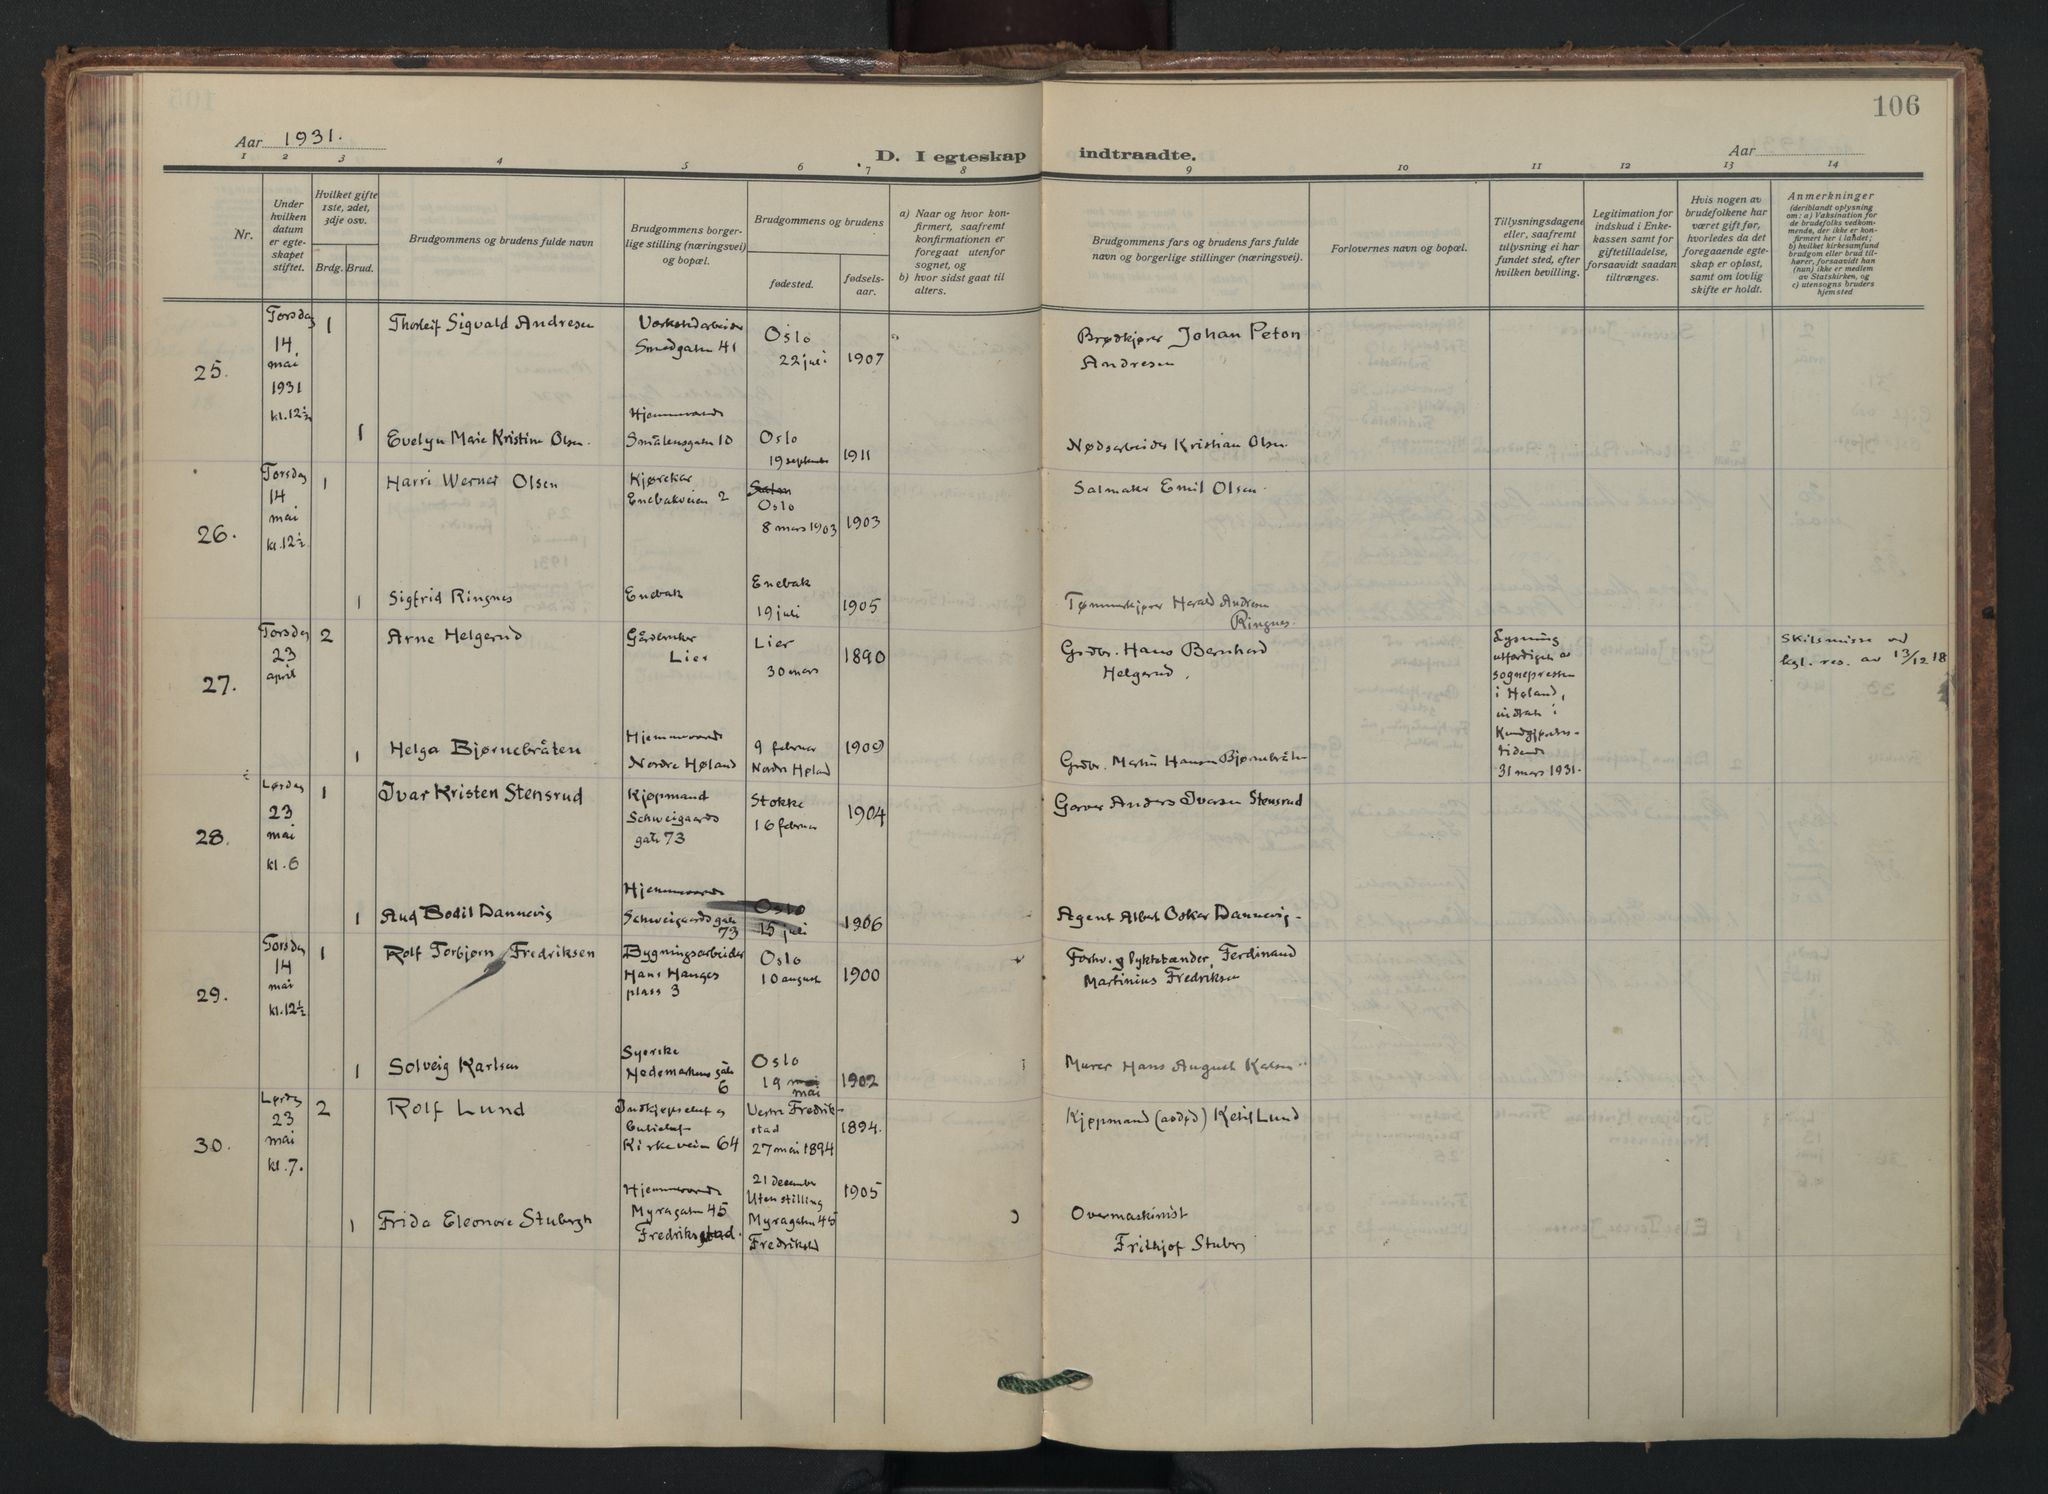 106
Aar 1931.
D. I egteskap indtraadte.
Aar
1 2 3 4 5 6 7 8 9 10 11 12 13 14
Nr.
Under hvilken datum er egteskapet stiftet.
Hvilket gifte 1ste, 2det, 3dje osv.
Brdg. Brud.
Brudgommens og brudens fulde navn
Brudgommens borgerlige stilling (næringsvei) og bopæl.
Brudgommens og brudens
fødested.
fødselsaar.
a) Naar og hvor konfirmert, saafremt konfirmationen er foregaat utenfor sognet, og
b) hvor sidst gaat til alters.
Brudgommens fars og brudens fars fulde navn og borgerlige stillinger (næringsvei).
Forlovernes navn og bopæl.
Tillysningsdagene eller, saafremt tillysning ei har fundet sted, efter hvilken bevilling.
Legitimation for indskud i Enkekassen samt for giftetilladelse, forsaavidt saadan tiltrænges.
Hvis nogen av brudefolkene har været gift før, hvorledes da det foregaaende egteskap er opløst, samt om lovlig skifte er holdt.
Anmerkninger
(deriblandt oplysning om: a) Vaksination for de brudefolks vedkommende, der ikke er konfirmert her i landet; b) hvilket kirkesamfund brudgom eller brud tilhører, forsaavidt han (hun) ikke er medlem av Statskirken, og c) utensogns bruders hjemsted
25.
Torsdag
14
mai
1931
kl. 12½
1
Thorleif Sigvald Andresen
Verkstedarbeider
Smedgaten 41
Oslo
22 juli
1907
Brødkjører Johan Peton
Andresen
1
Evelyn Marie Kristine Olsen.
Hjemmeværende
Smålensgaten 10
Oslo
19 september
1911
Nødsarbeider Kristian Olsen.
26.
Torsdag
14
mai
kl. 12½
1
Harri Werner Olsen
Kjørekar
Enebakveien 2
Oslo
8 mars 1903
1903
Salmaker Emil Olsen.
1
Sigfrid Ringnes
Enebak
Enebak
19 juli
1905
Tømmerkjører Harald Andresen
Ringnes.
27.
Torsdag
23
april
2
Arne Helgerud
Gårdbruker
Lier
Lier
30 mars
1890
Grdbr. Hans Bernhard
Helgerud.
Lysning
utferdiget av
sognepresten
i Høland,
indtat i
Kundgjørelses-
tidende
31 mars 1931.
Skilsmisse ved
kgl. res. av 13/12 18
1
Helga Bjørnebråten
Hjemmeværende
Nordre Høland
9 februar
Nordre Høland
1909
Grdbr. Martin Hansen Bjørnebråten
28.
Lørdag
23
mai
kl. 6
1
Ivar Kristen Stensrud
Kjøpmand
Schweigaards
gate 73
Stokke
16 februar
1904
Garver Anders Iversen Stensrud
1
Aud Bodil Dannevig
Hjemmeværende
Schweigaards gate
73
Oslo
15 juli
1906
Agent Albert Oskar Dannevig.
29.
Torsdag
14
mai
kl. 12½
1
Rolf Torbjørn Fredriksen
Bygningsarbeider
Hans Hauges
plass 3
Oslo
10 august
1900
Forhv. lyktetænder, Ferdinand
Martinius Fredriksen
1
Solveig Karlsen
Syerske
Hedemarkens gate
6
Oslo
19 mai
mai
1902
Murer Hans August Kalsen
30.
Lørdag
23
mai
kl. 7.
2
Rolf Lund
Indkjøpschef og
Kirkeveien 64
Vestre Fredrik-
stad
27 mai 1894
1894.
Kjøpmand (avdød) Ketil Lund
1
Frida Eleonore Stubergh
Hjemmeværende
Myragaten 45
Fredrikstad.
21 december
Uten stilling
Myragaten 45
Fredrikstad
1905
Overmaskinist
Frithjof Stuberg